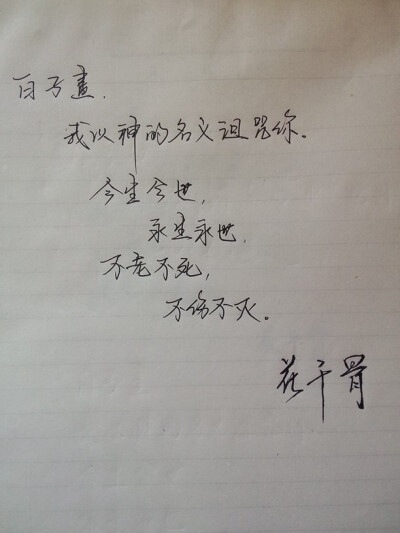 白子畫.
我以神的名义诅咒你。
今生今世,
永生永世,
不老不死,
不伤不灭。
花千骨